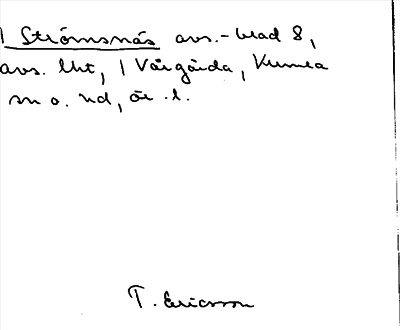 1 Strömsnäs avs.-brad 8,
avs. lht, 1 Vårgårda, Kumla
sn o. hd, ör. l.
T. Ericsson